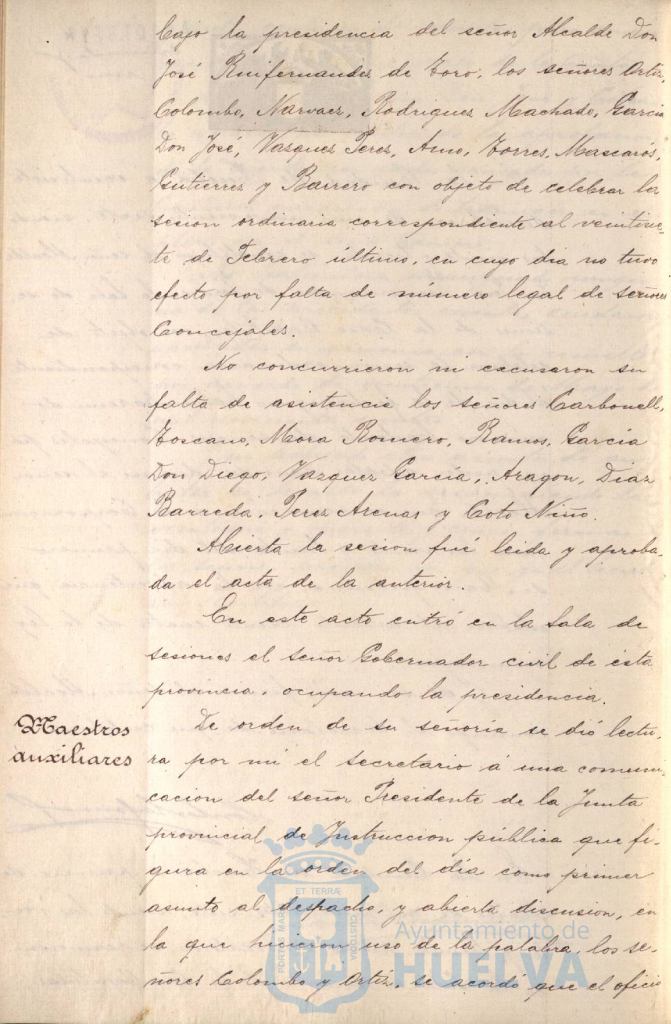 bajo la presidencia del señor Alcalde Don
José Ruifernandez de Toro, los señores Ortiz,
Colombo, Narvaez, Rodriguez Machado, Garcia
Don José, Vazquez Perez, Amo, Torres, Mascarós,
Gutierrez y Barrero con objeto de celebrar la
sesion ordinaria correspondiente al veintisie-
te de Febrero último, en cuyo dia no tuvo
efecto por falta de número legal de señores
Concejales.
No concurrieron ni excusaron su
falta de asistencia los señores Carbonell,
Toscano, Mora Romero, Ramos, García
Don Diego, Vazquez García, Aragon, Diaz
Barreda, Perez Arenas y Coto Niño.
Abierta la sesion fué leida y aproba-
da el acta de la anterior.
En este acto entró en la Sala de
sesiones el señor Gobernador civil de ésta
provincia, ocupando la presidencia.
Maestros
auxiliares
De orden de su señoria se dió lectu-
ra por mí el secretario á una comuni-
cacion del señor Presidente de la Junta
provincial de Instruccion pública que fi-
gura en la orden del dia como primer
asunto al despacho, y abierta discusion, en
la que hicieron uso de la palabra, los se-
ñores Colombo y Ortiz, se acordó que el oficio
PORTUS MARIS
ET TERRÆ
CUSTODIA
Ayuntamiento de
HUELVA